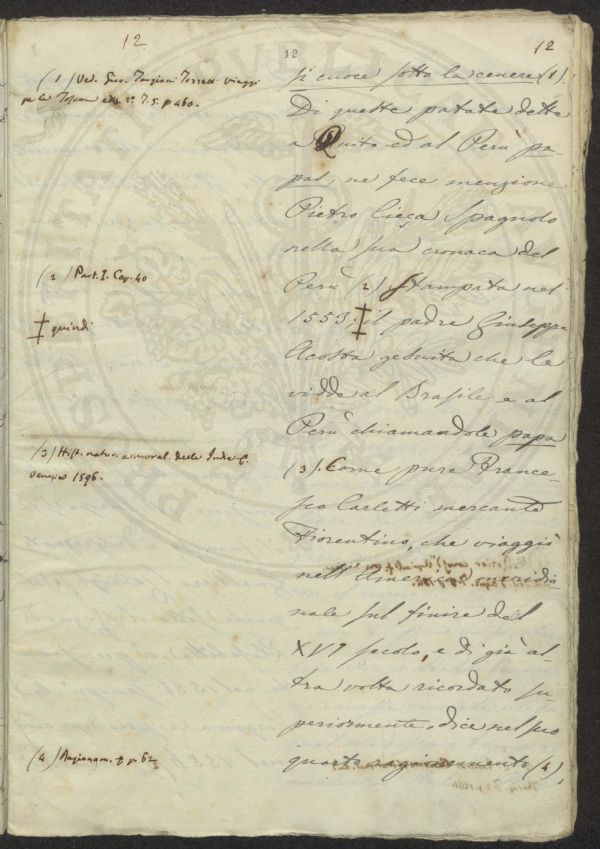 12
12
12
(1) Ved. Giov. Targioni Tozzetti viaggi
per la Toscana ediz. 2ª T. 5. p 460.
si cuoce sotto la cenere (1).
Di queste patate dette
a Quito ed al Perù pa-
pas, ne fece menzione
Pietro Cieça Spagnolo
nella sua cronaca del
(2) Part. I. Cap. 40
Perù (2) Stampata nel
‡ quindi
1553; ‡ il padre Giuseppe
Acosta gesuita che le
vidde al Brasile e al
Perù chiamandole papa
(3) Hist. natur. e moral. delle Indie
Venezia 1596.
(3). Come pure France-
sco Carletti mercante
Fiorentino, che viaggiò
nell'America meridio-
nale sul finire del
XVI secolo, e di già al-
tra volta ricordato su-
periormente, dice nel suo
(4) Ragionam. p. 62
quarto ragionamento (4),